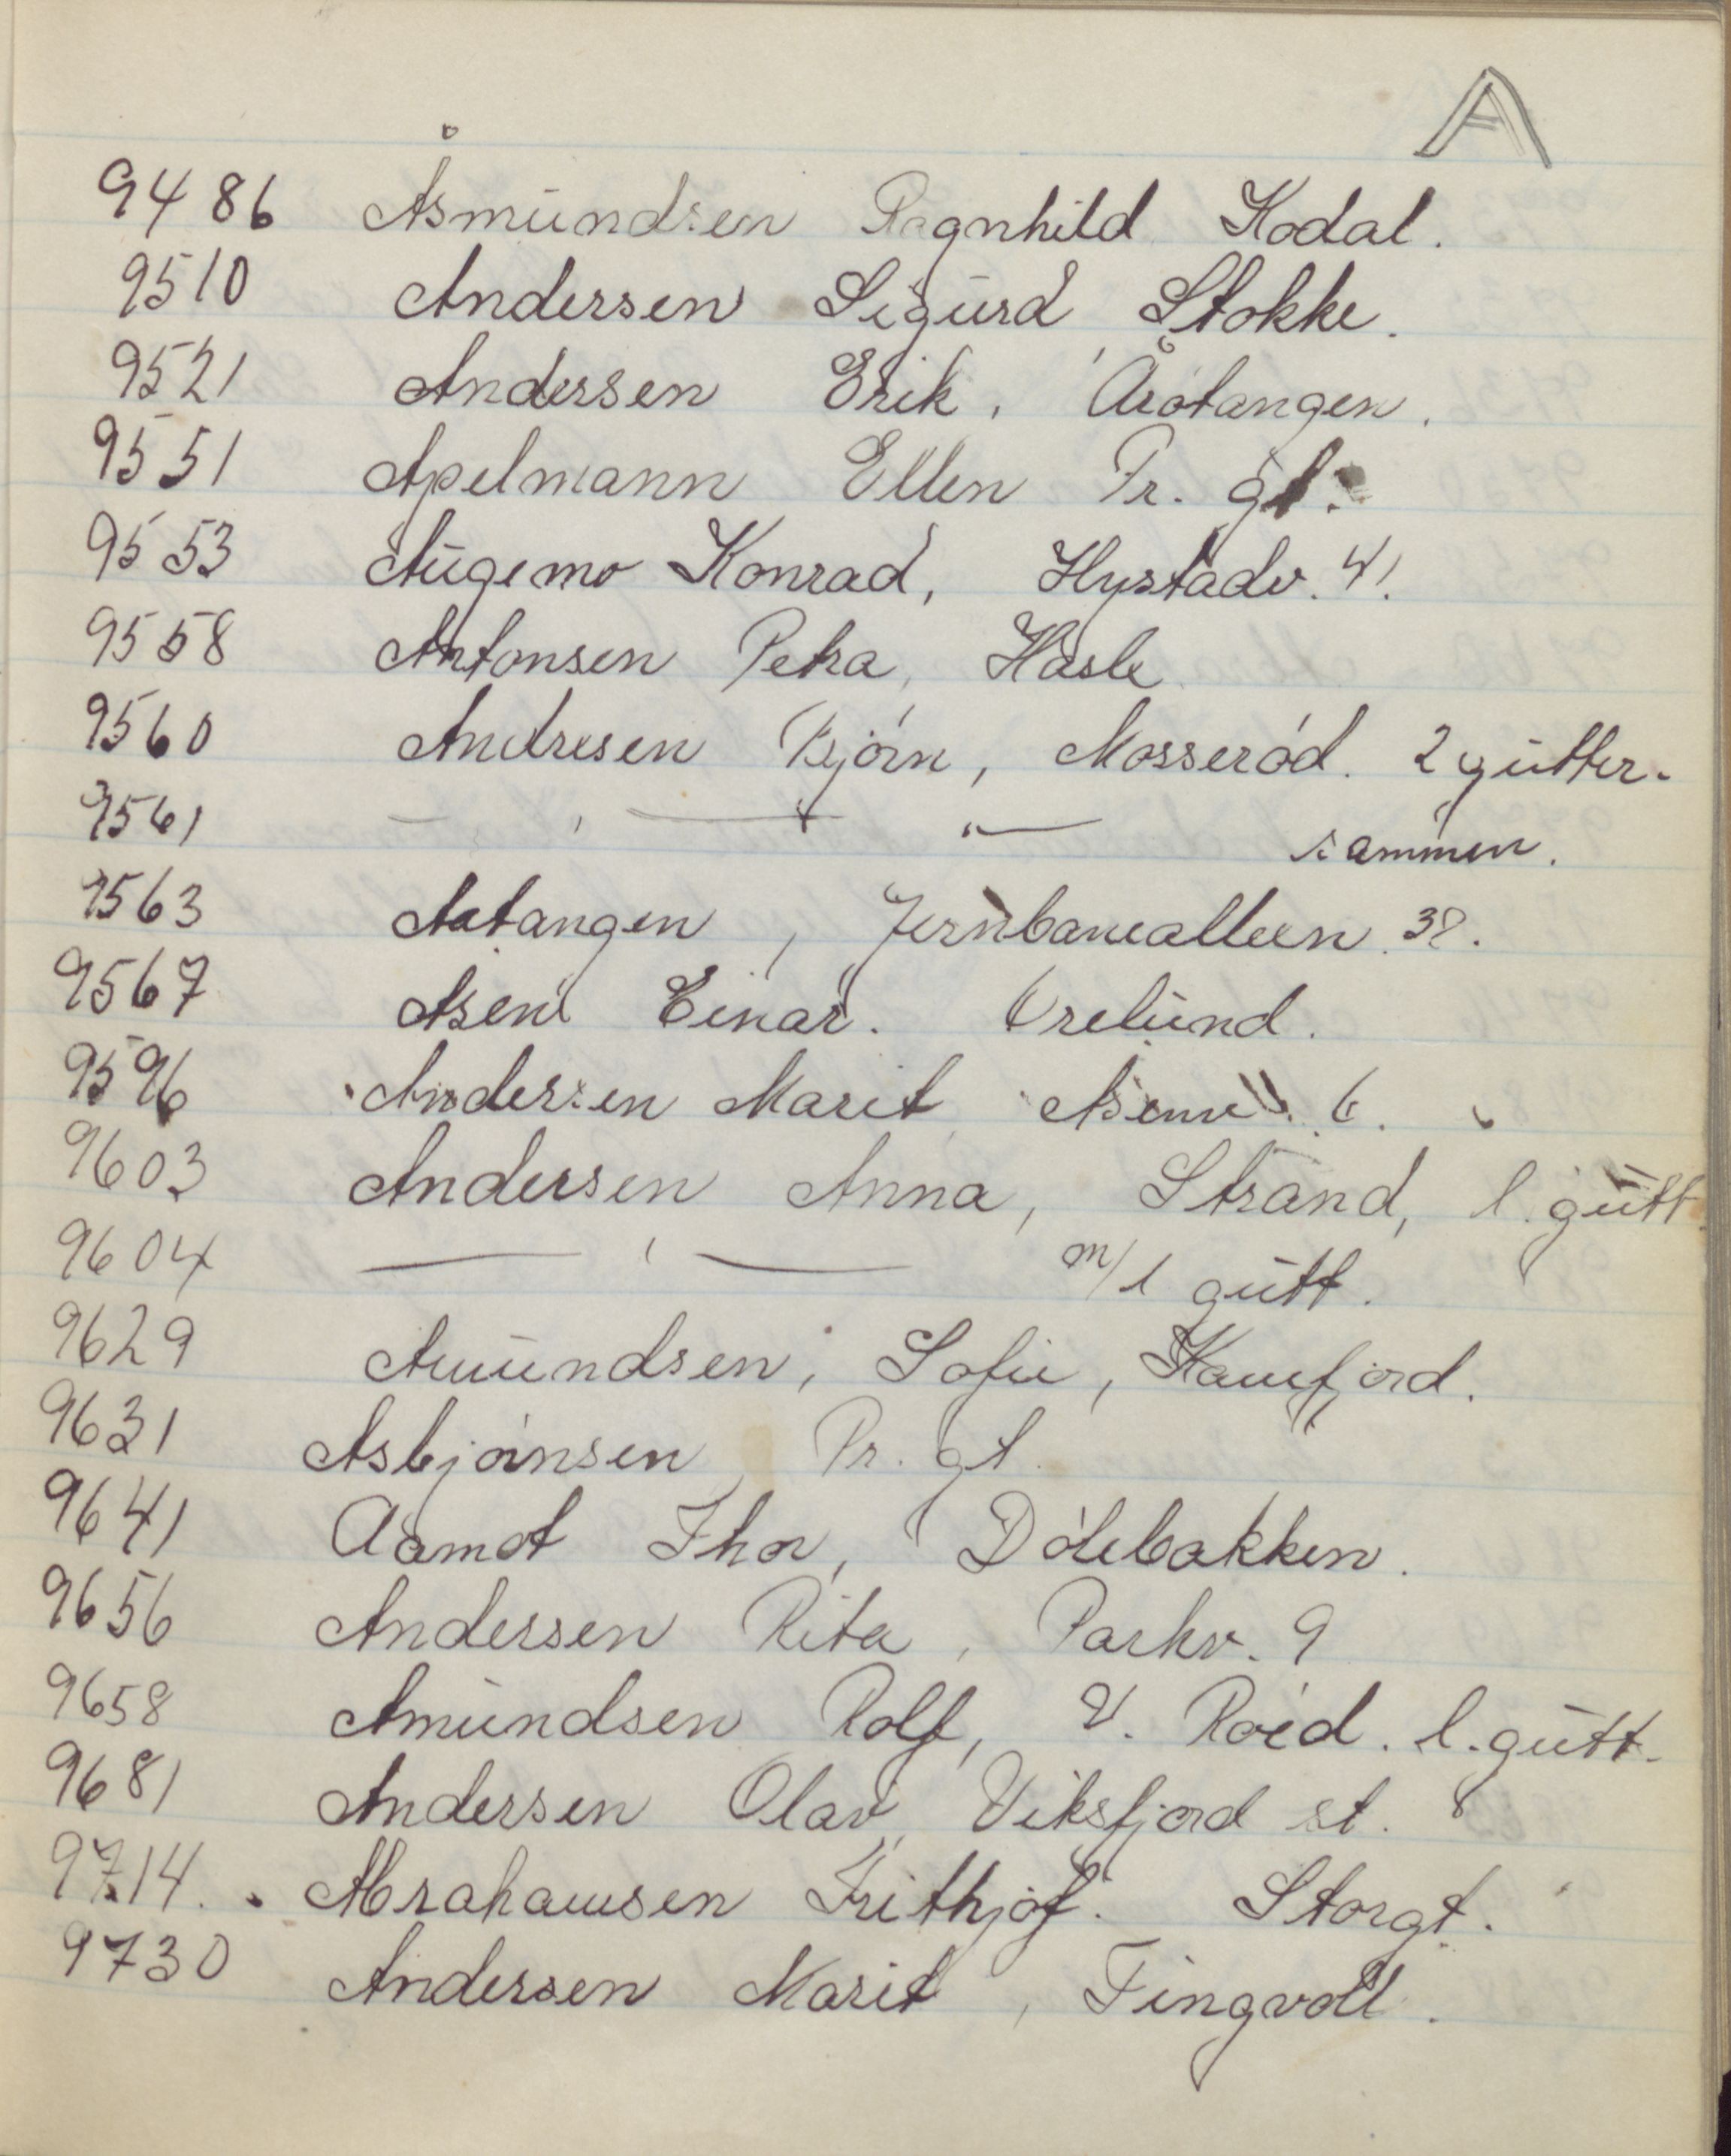 A
9486 Åsmundsen Ragnhild Kodal.
9510 Andersen Sigurd Stokke.
9521 Andersen Erik, Årøtangen.
9551 Apelmann Ellen Pr. gt.
9553 Augemo Konrad, Hystadv. 41.
9558 Antonsen Petra, Hasle
9560 Andresen Bjørn, Mosserød. 2 gutter
9561 — " — " — sammen.
9563 Aatangen, Jernbanealleen 38.
9567 Aseni Einar. Orelund.
9596 Andersen Marit, 6.
9603 Andersen Anna, Strand, l. gutt
9604 — " — m/1 gutt.
9629 Amundsen, Sofie, Kamfjord.
9631 Asbjørnsen, Pr. gt.
9641 Aamot Thor, Dølebakken.
9656 Andersen Rita, Parkv. 9
9658 Amundsen Rolf, V. Røed. l. gutt.
9681 Andersen Olav, Viksfjord st.
9714. Abrahamsen Frithjof. Storgt.
9730 Andersen Marit, Tingvoll.